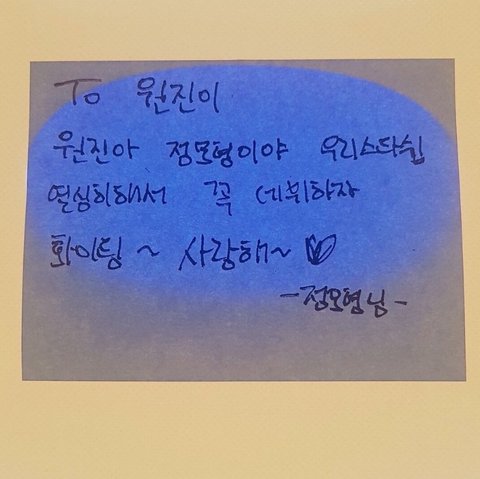 To 원진이
원진아 정모형이야 우리스타쉽
열심히해서 꼭 데뷔하자
화이팅 ~ 사랑해~ ♡
-정모형님-